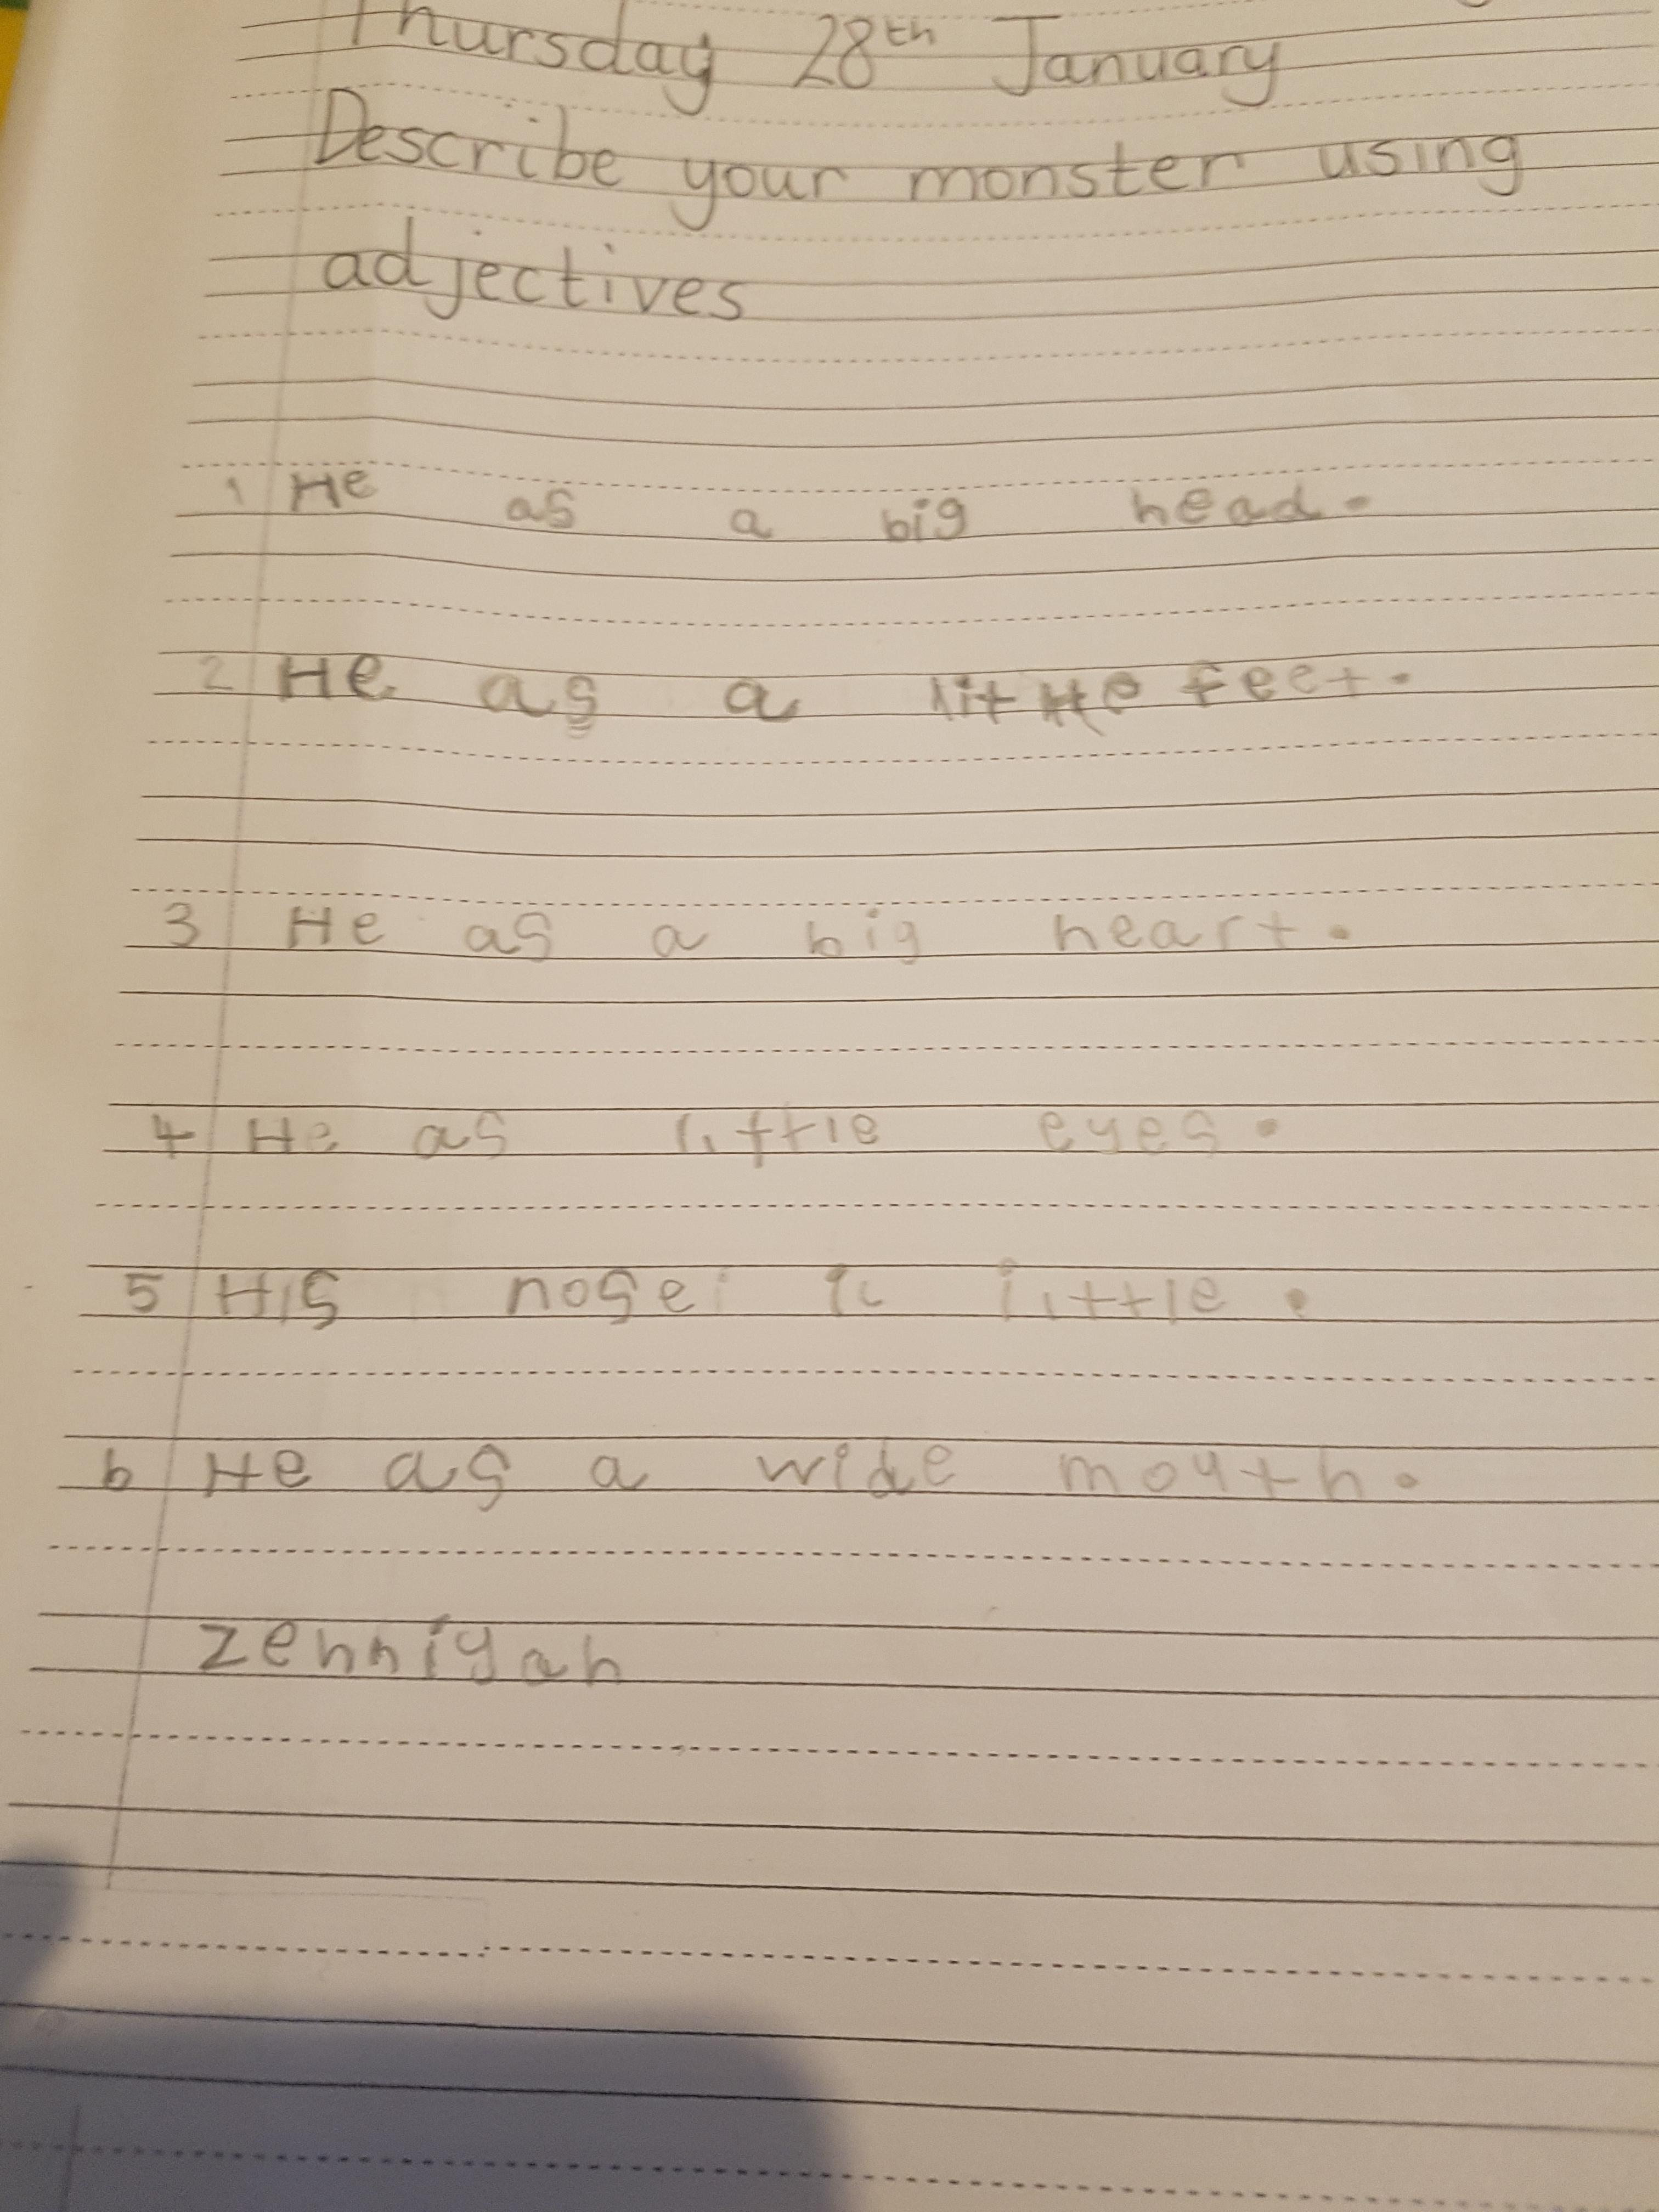 Thursday 28th January
Describe your monster using
adjectives
1 He as a big head.
2 He as a little feet.
3 He as a big heart.
4 He as little eyes.
5 His nose is little.
6 He as a wide mouth.
zenniyah